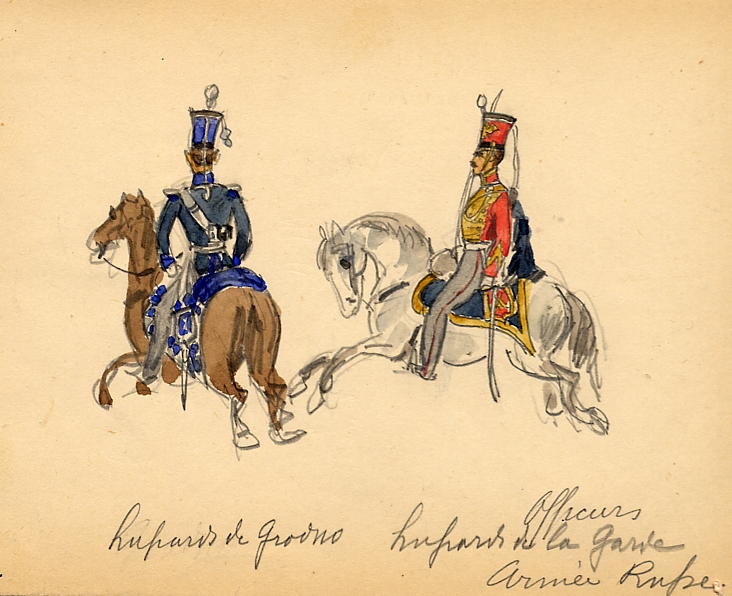 hussards de Grodno
Officiers
hussards de la Garde
Armée Russe.